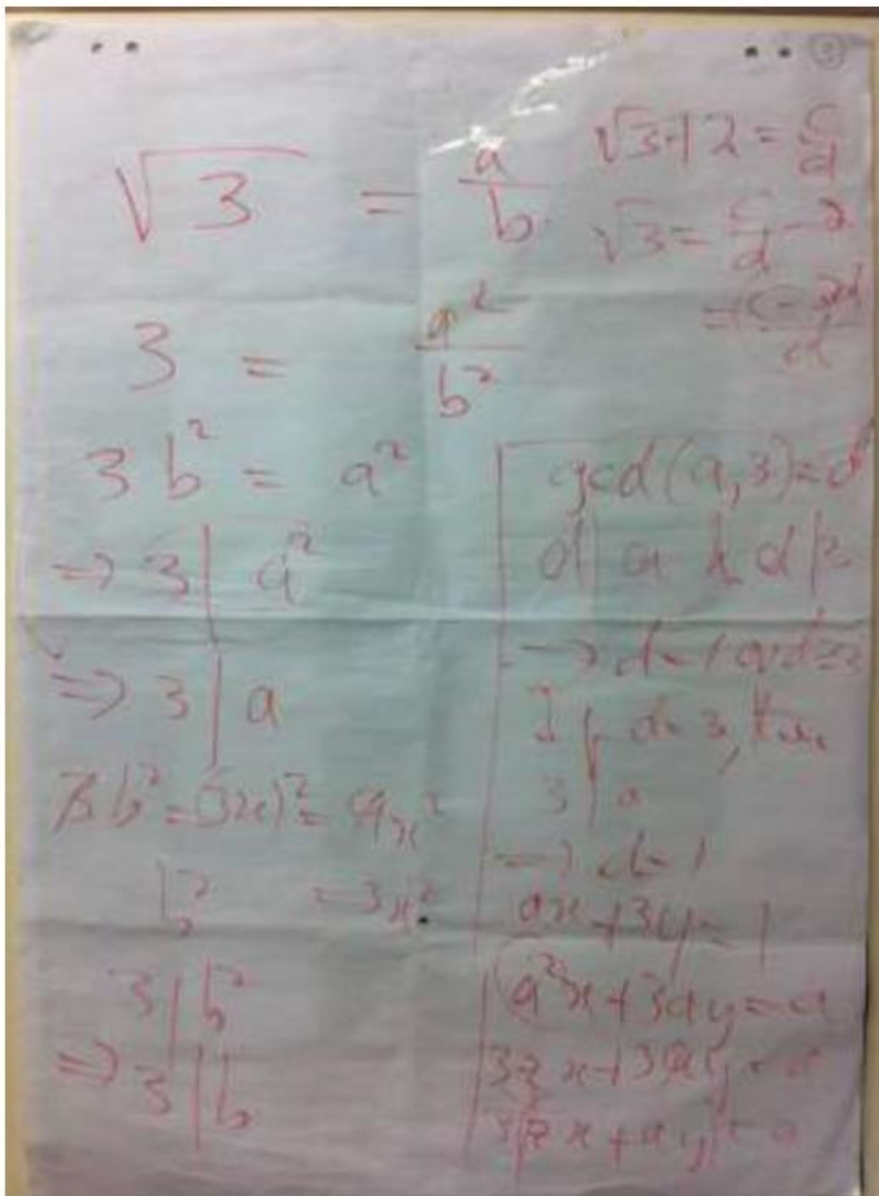 ③
√3 = a/b
3 = a²/b²
3b² = a²
⇒ 3 | a²
⇒ 3 | a
3b² = (3x)² = 9x²
b² = 3x²
3 | b²
⇒ 3 | b
√3+2 = c/d
√3 = c/d - 2
= (c-2d)/d
gcd(a,3)=d
d | a & d | 3
→ d=1 or d=3
If d=3, then
3 | a
→ d=1
ax+3y=1
a²x+3ay=a
3zx+3ay=a
3(zx+ay)=a